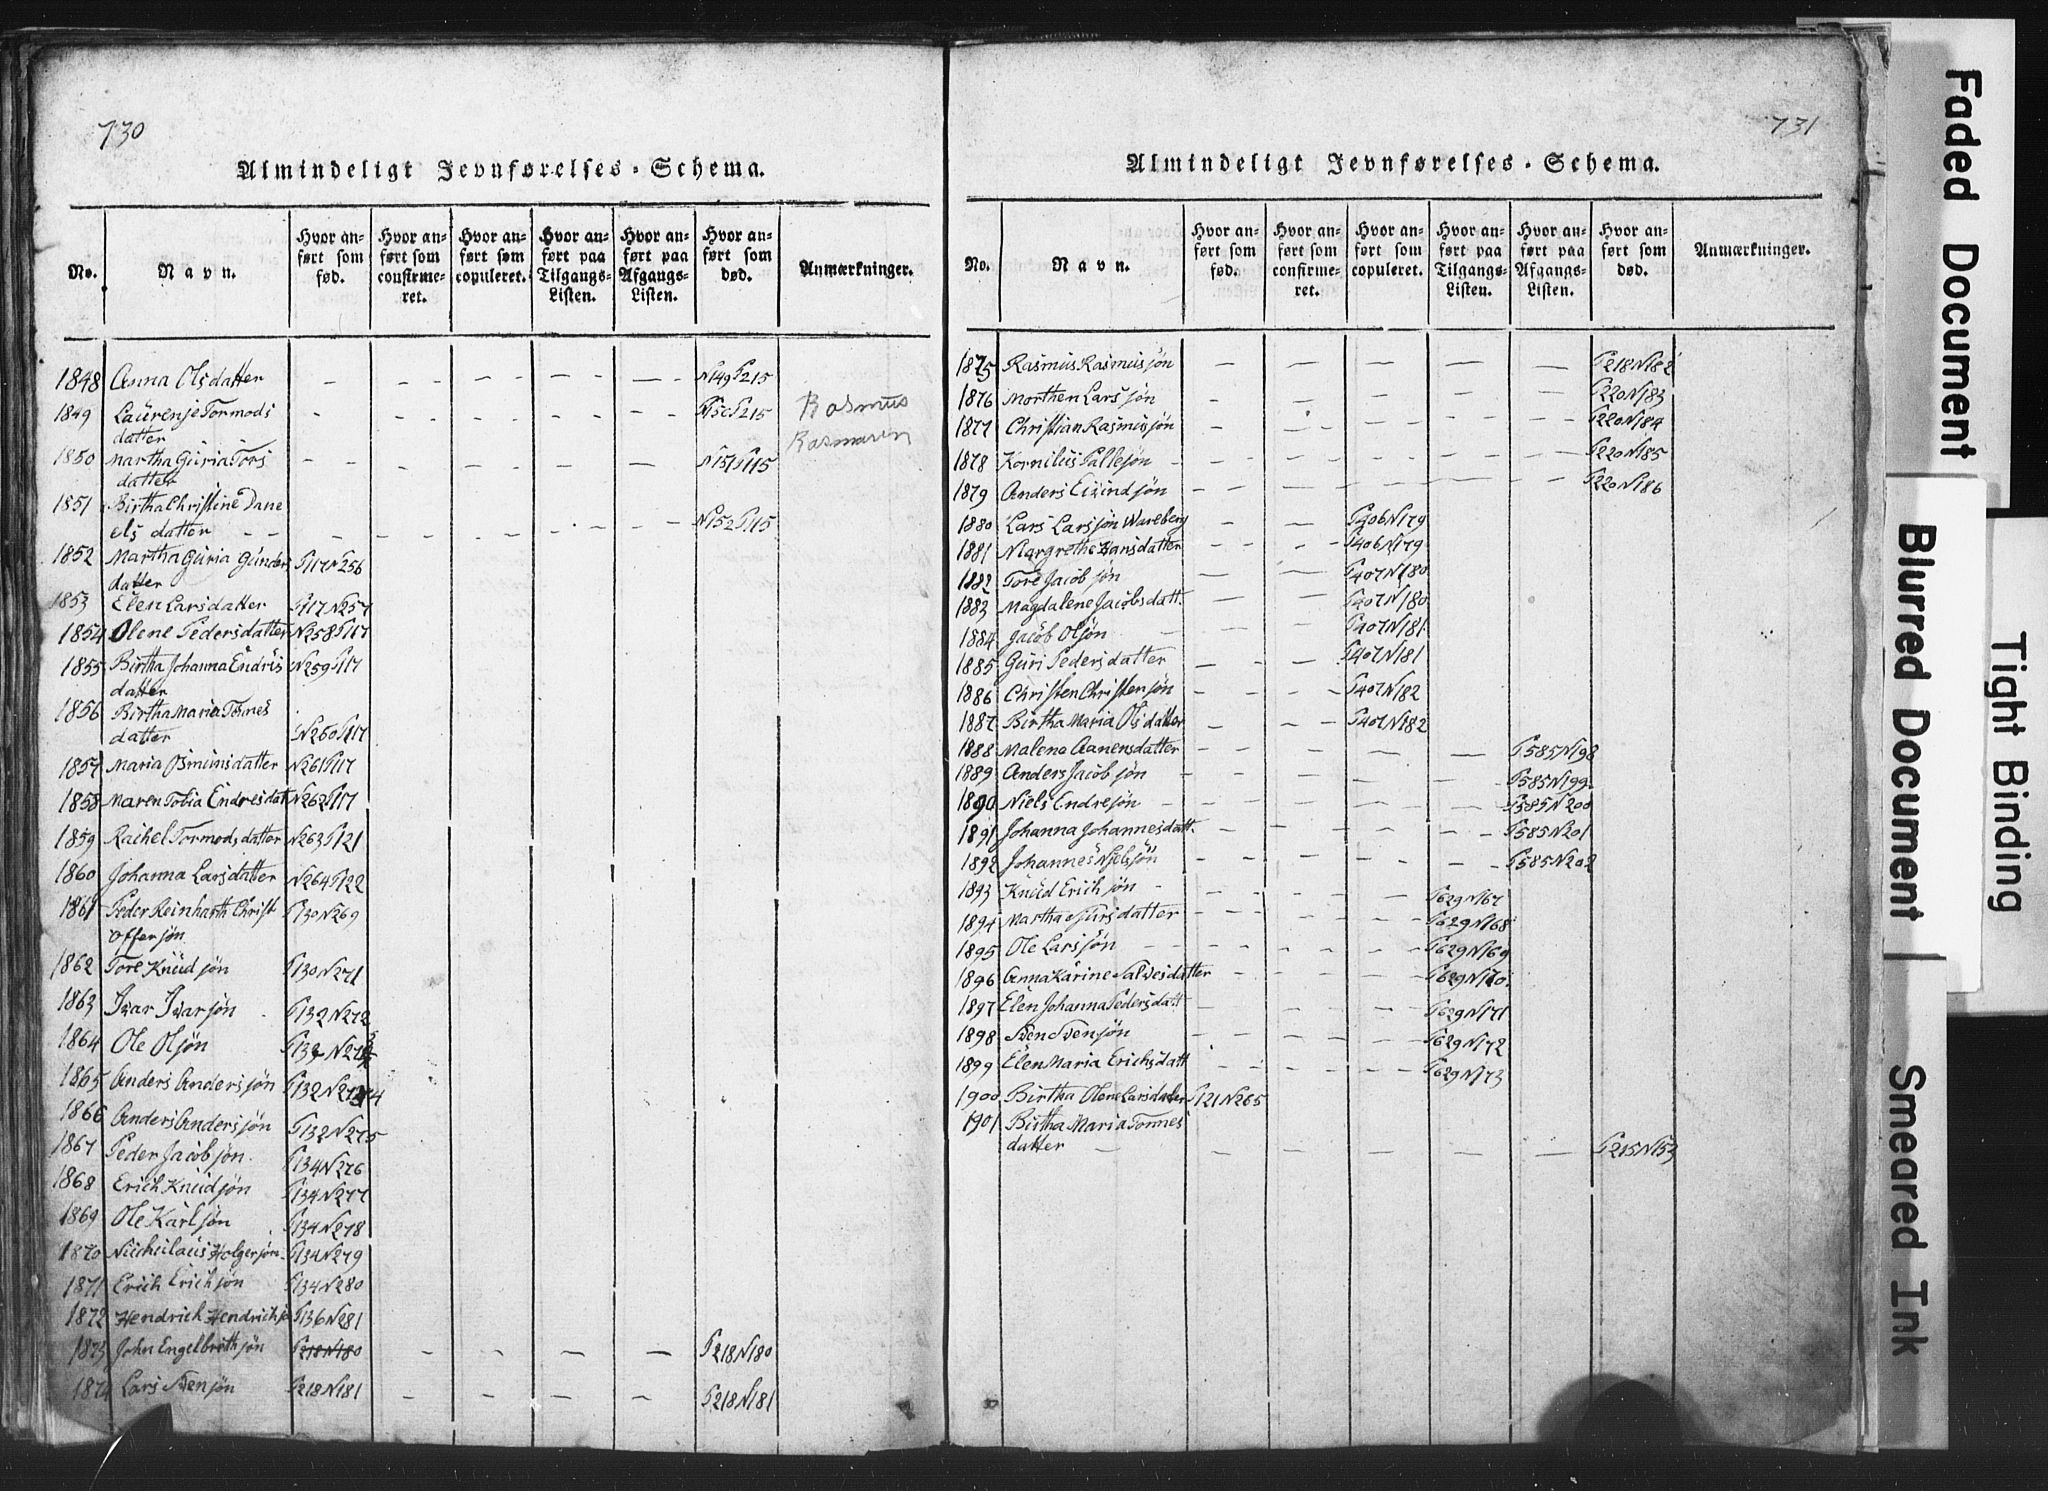 730
Almindeligt Jevnførelses-Schema.
No.
Navn.
Hvor anført som fød.
Hvor anført som confirmeret.
Hvor anført som copuleret.
Hvor anført paa Tilgangs-Listen.
Hvor anført paa Afgangs-Listen.
Hvor anført som død.
Anmærkninger.
1848 Anna Olsdatter – – – – – – – – – N149 P215
1849 Laürenje Tormods
datter – – – – – – – – P215 Rasmus
1850 Martha Güria Tors
datter – – – – – – – – N151 P115
1851 Birtha Christine Dane
els datter – – – – – – – – N152 P115
1852 Martha Güria Günders
datter P117 N256
1853 Elen Larsdatter P117 N257
1854 Olene Pedersdatter N258 P117
1855 Birtha Johanna Endris
datter N259 P117
1856 Birtha Maria Tönnes
datter N260 P117
1857 Maria Osmünsdatter N261 P117
1858 Maren Tobia Endresdat N262 P117
1859 Rachel Tormodsdatter N263 P121
1860 Johanna Larsdatter N264 P122
1861 Peder Reinharth Christ
offersjøn P130 N269
1862 Tore Knüdsjøn P130 N271
1863 Ivar Ivarsjøn P132 N272
1864 Ole Olsjøn P132
1865 Anders Andersjøn P132
1866 Anders Andersjøn P132 N275
1867 Peder Jacobsjøn P134 N276
1868 Erich Knüdsjøn P134 N277
1869 Ole Karlsjøn P134 N278
1870 Nichülaüs Holgersjøn P134 N279
1871 Erich Erichsjøn P134 N280
1872 Hendrich Hendrichsjø P136 N281
1873 John Engelbrethsjøn P218 N180 – – – – – P218 N180
1874 Lars Svensjøn P218 N181 – – – – – P218 N181
731
Almindeligt Jevnførelses-Schema.
No.
Navn.
Hvor anført som fød.
Hvor anført som confirmeret.
Hvor anført som copuleret.
Hvor anført paa Tilgangs-Listen.
Hvor anført paa Afgangs-Listen.
Hvor anført som død.
Anmærkninger.
1875 Rasmus Rasmusjøn – – – – – P218 N182
1876 Morthen Larsjøn – – – – – P220 N183
1877 Christian Rasmusjøn – – – – – P220 N184
1878 Kornilius Pallesjøn – – – – – P220 N185
1879 Anders Eivindsjøn – – – – – P220 N186
1880 Lars Larsjøn Wareberg – – – P406 N179
1881 Margrethe Hansdatter – – – P406 N179
1882 Tore Jacobsjøn – – P407 N180
1883 Magdalene Jacobsdatt. – – P407 N180
1884 Jacob Olsjøn – – – P407 N181
1885 Güri Pedersdatter – – P407 N181
1886 Christen Christensjøn – – P407 N182
1887 Birtha Maria Olsdatter – – P407 N182
1888 Malena Aanensdatter – – – – P585 N198
1889 Anders Jacobsjøn – – – – P585 N199
1890 Niels Endresjøn – – – – P585 N200
1891 Johanna Johannesdatt. – – – – P585 N201
1892 Johannes Njelsjøn – – – – P585 N202
1893 Knüd Erichsjøn – – – – P629 N167
1894 Martha Sjürsdatter – – – – P629 N168
1895 Ole Larsjøn – – – – P629 N169
1896 Anna Karine Salvesdatter – – – P629 N170
1897 Elen Johanna Pedersdatt – – – P629 N171
1898 Sven Svensjøn – – – P629 N172
1899 Elen Maria Erichsdatt – – – P629 N173
1900 Birtha Olene Larsdatter P121 N265
1901 Birtha Maria Tonnes
datter – – – – – – P215 N153
Faded Document
Tight Binding
Blurred Document
Smeared Ink